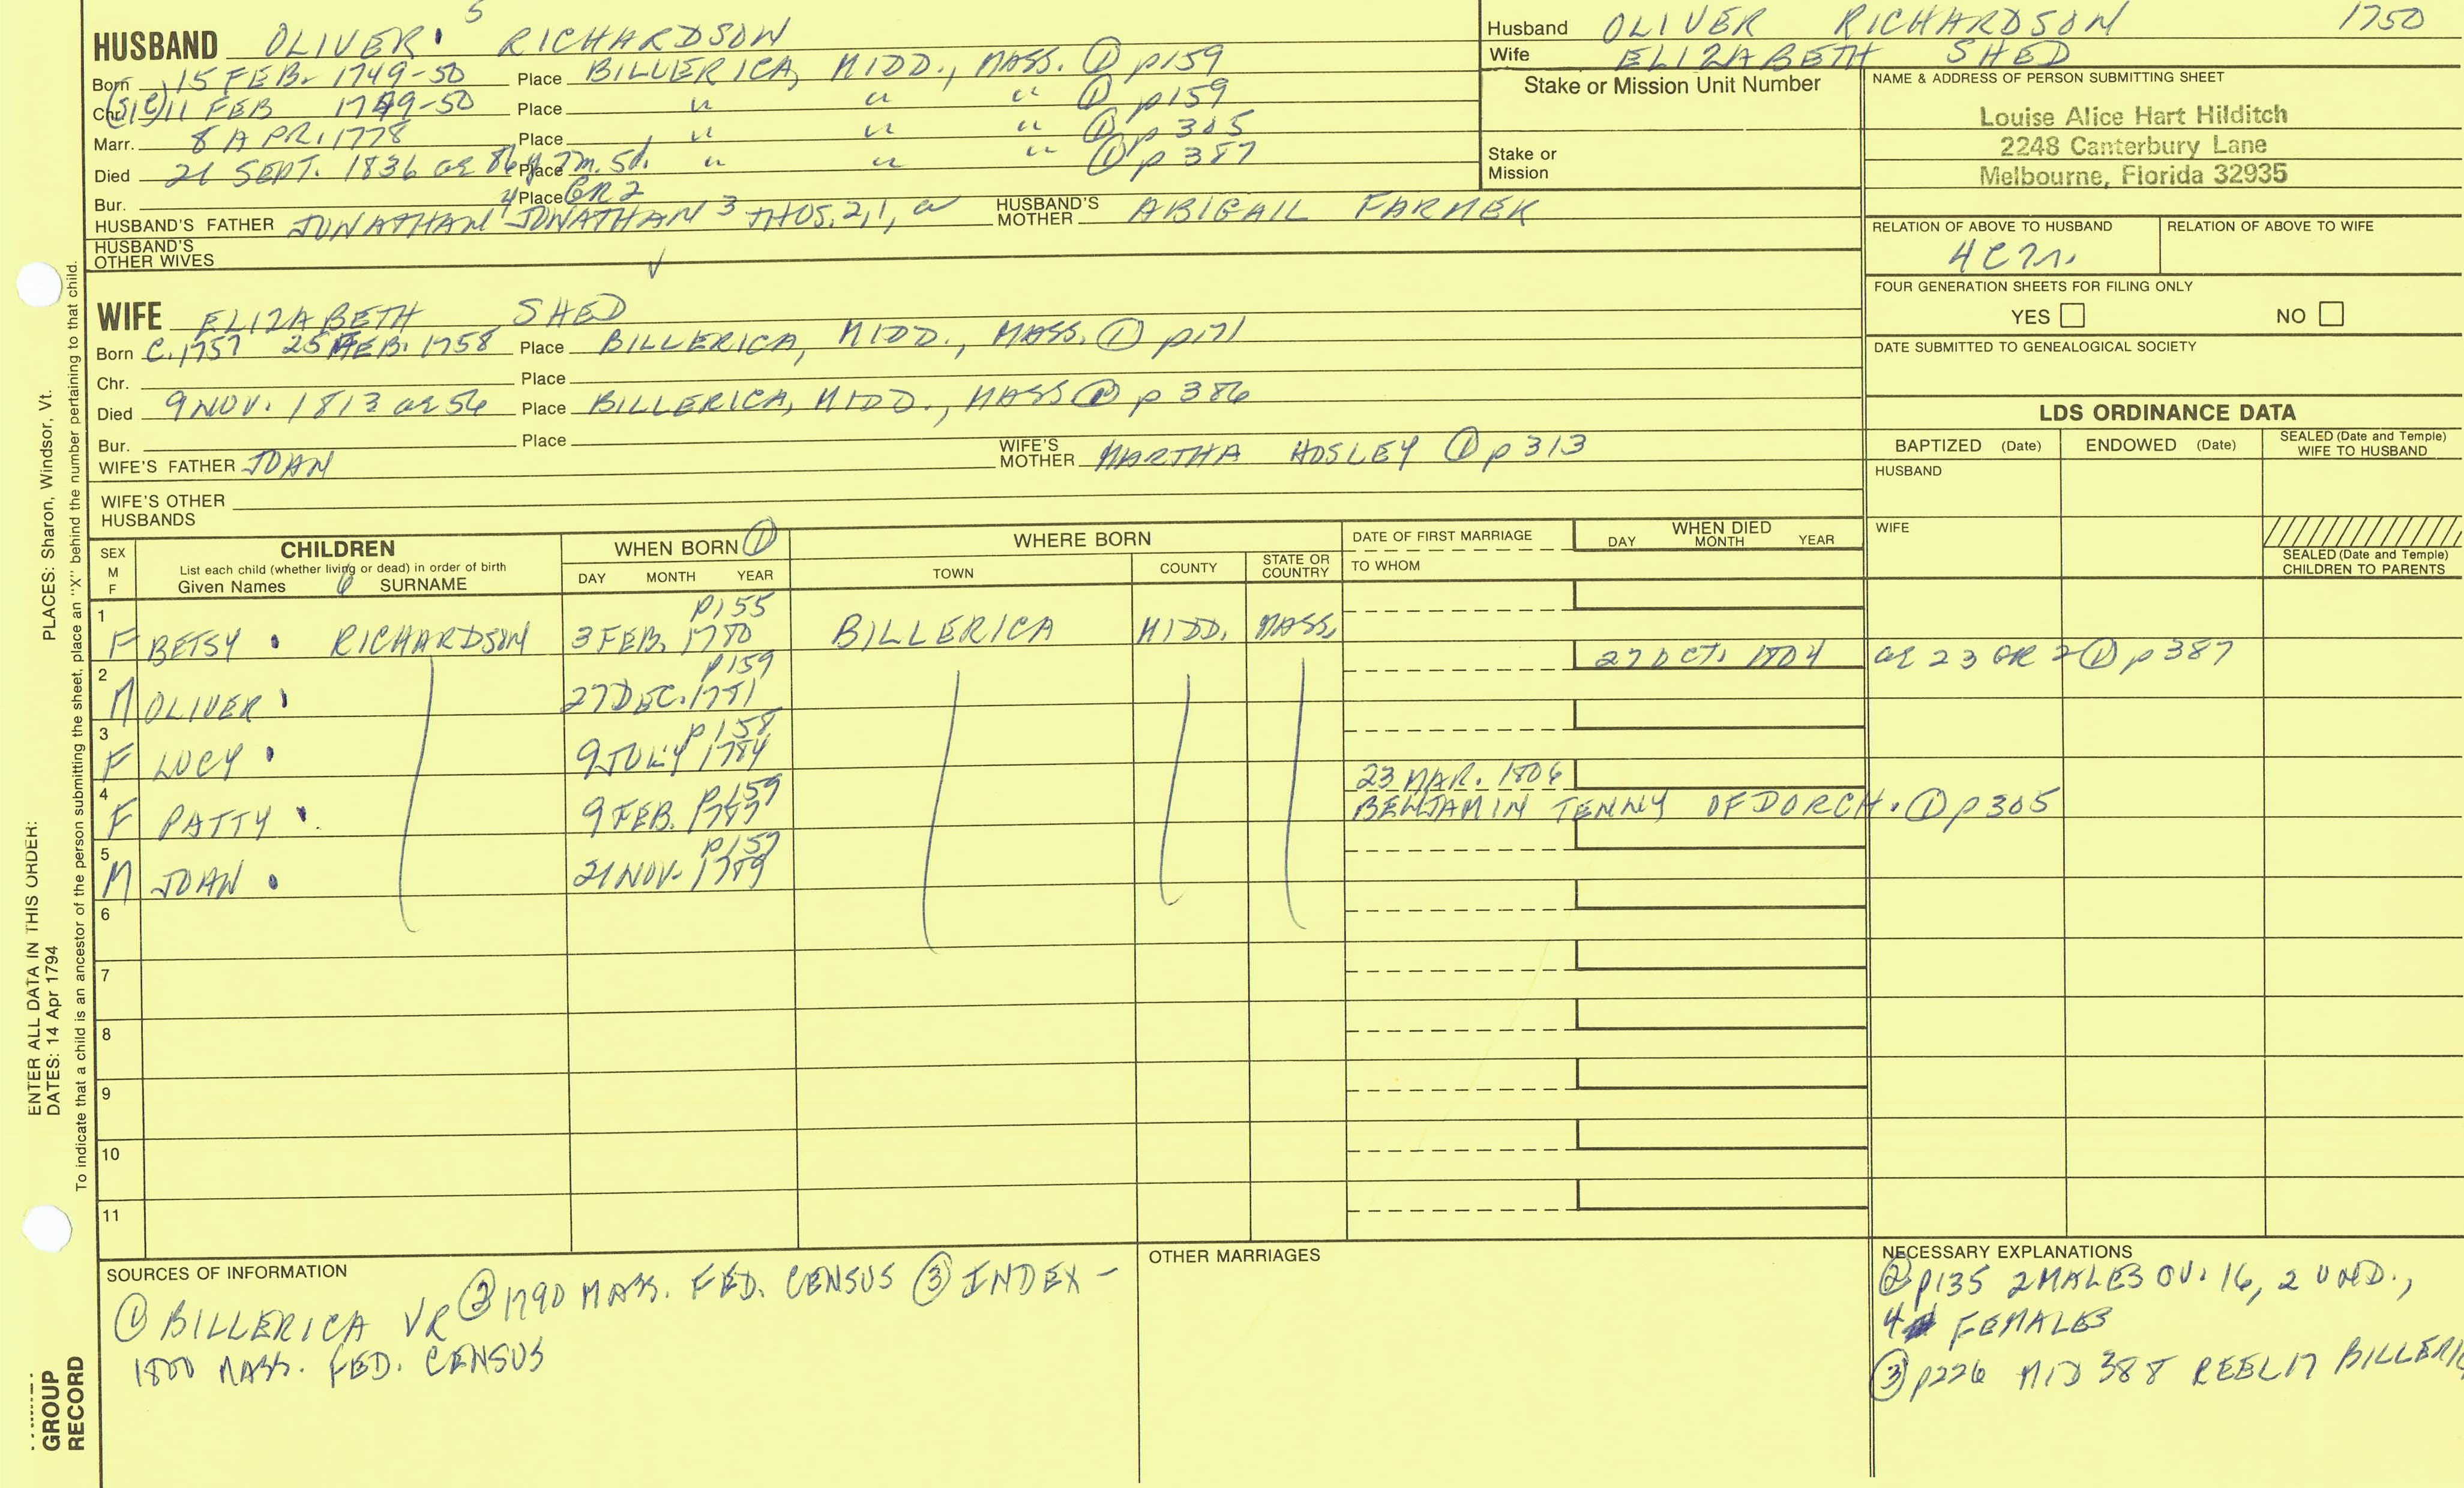 5
HUSBAND OLIVER RICHARDSON
Born 15 FEB. 1749-50 Place BILLERICA, MIDD., MASS. ① p159
Chr. (SIC) 11 FEB 1749-50 Place " " " ① p159
Marr. 8 APR. 1778 Place " " " ① p 305
Died 21 SEPT. 1836 ae 86y 7m. 5d. Place " " " ① p 387
Bur. Place GR 2
HUSBAND'S FATHER JONATHAN 4 JONATHAN 3 THOS. 2, 1, HUSBAND'S MOTHER ABIGAIL FARMER
HUSBAND'S OTHER WIVES
Husband OLIVER RICHARDSON 1750
Wife ELIZABETH SHED
Stake or Mission Unit Number
Stake or Mission
NAME & ADDRESS OF PERSON SUBMITTING SHEET
Louise Alice Hart Hilditch
2248 Canterbury Lane
Melbourne, Florida 32935
RELATION OF ABOVE TO HUSBAND RELATION OF ABOVE TO WIFE
FOUR GENERATION SHEETS FOR FILING ONLY
YES NO
DATE SUBMITTED TO GENEALOGICAL SOCIETY
WIFE ELIZABETH SHED
Born C. 1757 25 FEB. 1758 Place BILLERICA, MIDD., MASS. ① p171
Chr. Place
Died 9 NOV. 1813 ae 56 Place BILLERICA, MIDD., MASS ① p 386
Bur. Place
WIFE'S FATHER JOHN WIFE'S MOTHER MARTHA HOSLEY ① p 313
WIFE'S OTHER HUSBANDS
LDS ORDINANCE DATA
BAPTIZED (Date) ENDOWED (Date) SEALED (Date and Temple) WIFE TO HUSBAND
HUSBAND
WIFE
SEALED (Date and Temple) CHILDREN TO PARENTS
SEX M F
CHILDREN
List each child (whether living or dead) in order of birth
Given Names 6 SURNAME
WHEN BORN ①
DAY MONTH YEAR
WHERE BORN
TOWN COUNTY STATE OR COUNTRY
DATE OF FIRST MARRIAGE
TO WHOM
WHEN DIED
DAY MONTH YEAR
1 p155
F BETSY RICHARDSON 3 FEB. 1780 BILLERICA MIDD. MASS.
27 OCT. 1804 ae 23 GR 2 ① p 387
2 p159
M OLIVER 27 DEC. 1781
3 p158
F LUCY 9 JULY 1784
4 p159 23 MAR. 1806
F PATTY 9 FEB. 1787 BENJAMIN TENNY OF DORCH. ① p 305
5 p157
M JOHN 21 NOV. 1789
6
7
8
9
10
11
SOURCES OF INFORMATION
① BILLERICA VR ② 1790 MASS. FED. CENSUS ③ INDEX -
1800 MASS. FED. CENSUS
OTHER MARRIAGES
NECESSARY EXPLANATIONS
② p135 2 MALES OV. 16, 2 UND.,
4 FEMALES
③ p226 MID 388 REEL 17
ENTER ALL DATA IN THIS ORDER:
DATES: 14 Apr 1794
PLACES: Sharon, Windsor, Vt.
To indicate that a child is an ancestor of the person submitting the sheet, place an "X" behind the number pertaining to that child.
GROUP
RECORD